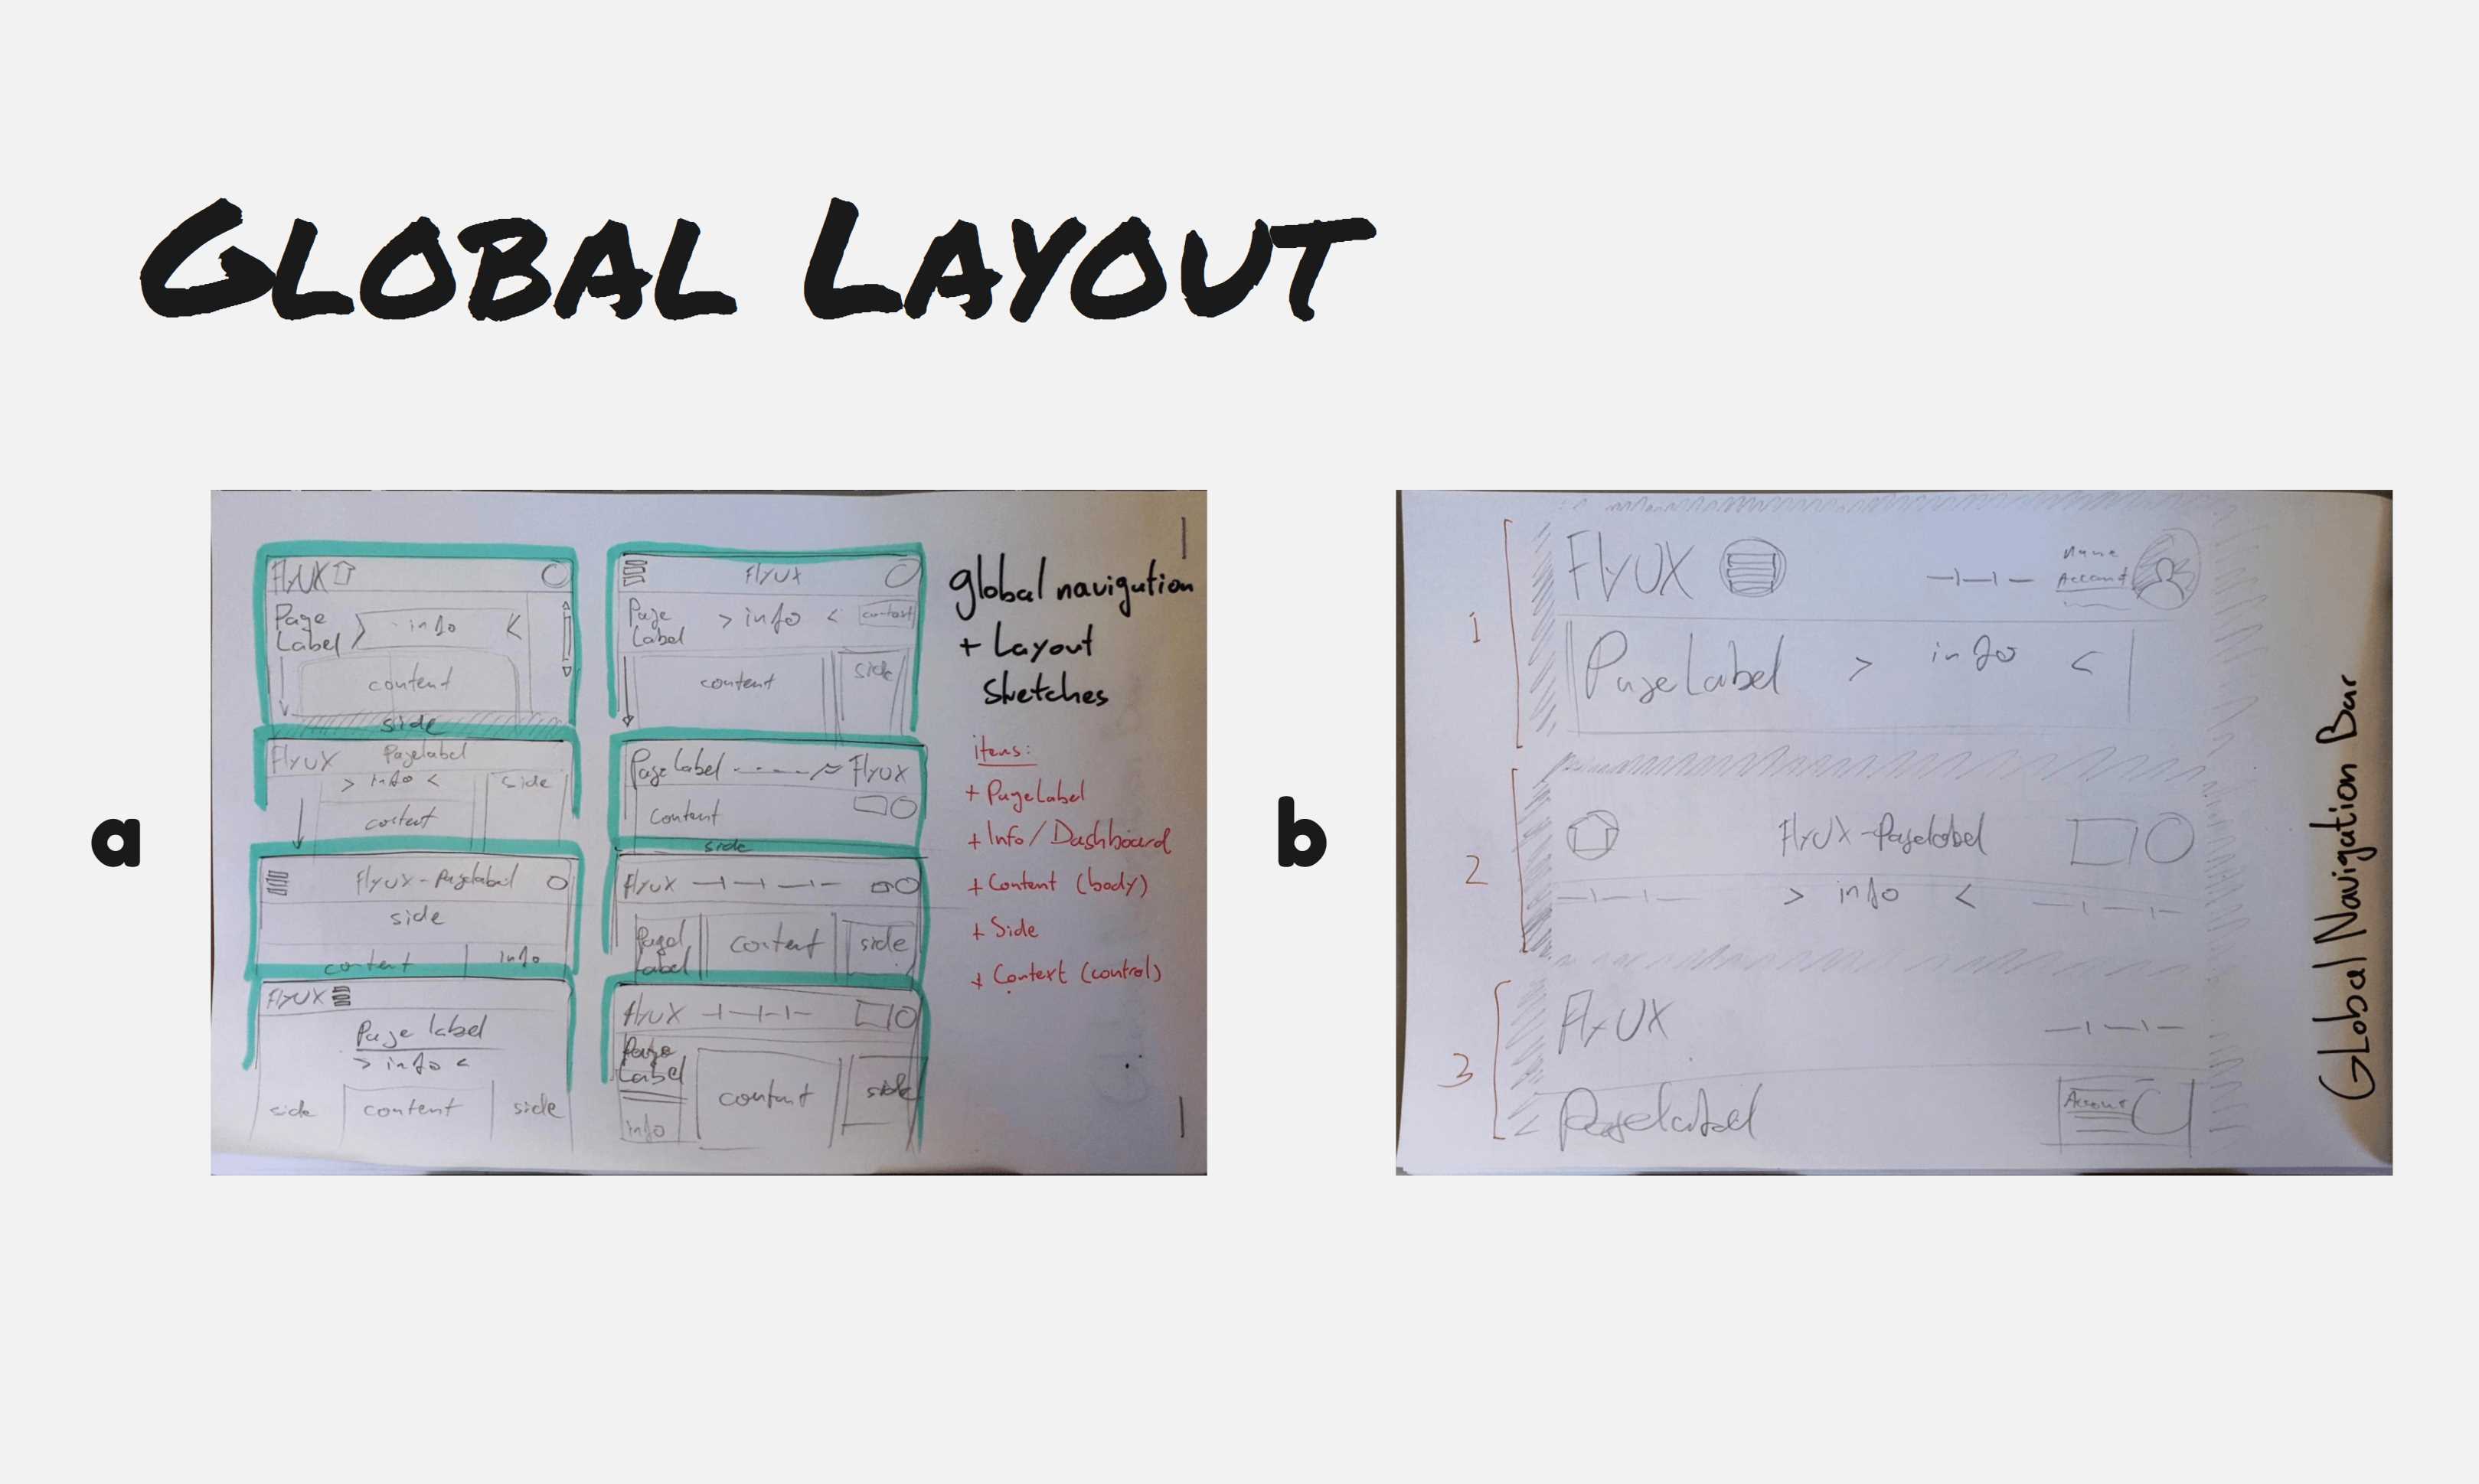 GLOBAL LAYOUT
a
FlyUX
Page
Label
info
content
side
FlyUX Pagelabel
> info < side
content
FlyUX - Pagelabel
side
content info
FlyUX
Page label
> info <
side content side
FlyUX
Page
Label
> info <
content side
Page Label FlyUX
Content
side
FlyUX
Pagel
Label
content
side
FlyUX
Page
Label
content
side
info
global navigation
+ Layout
Sketches
items:
+ PageLabel
+ Info/Dashboard
+ Content (body)
+ Side
+ Context (control)
b
1
FlyUX
Name
Account
PageLabel > info <
2
FlyUX - Pagelabel
> info <
3
FlyUX
Pagelabel
Account
Global Navigation Bar